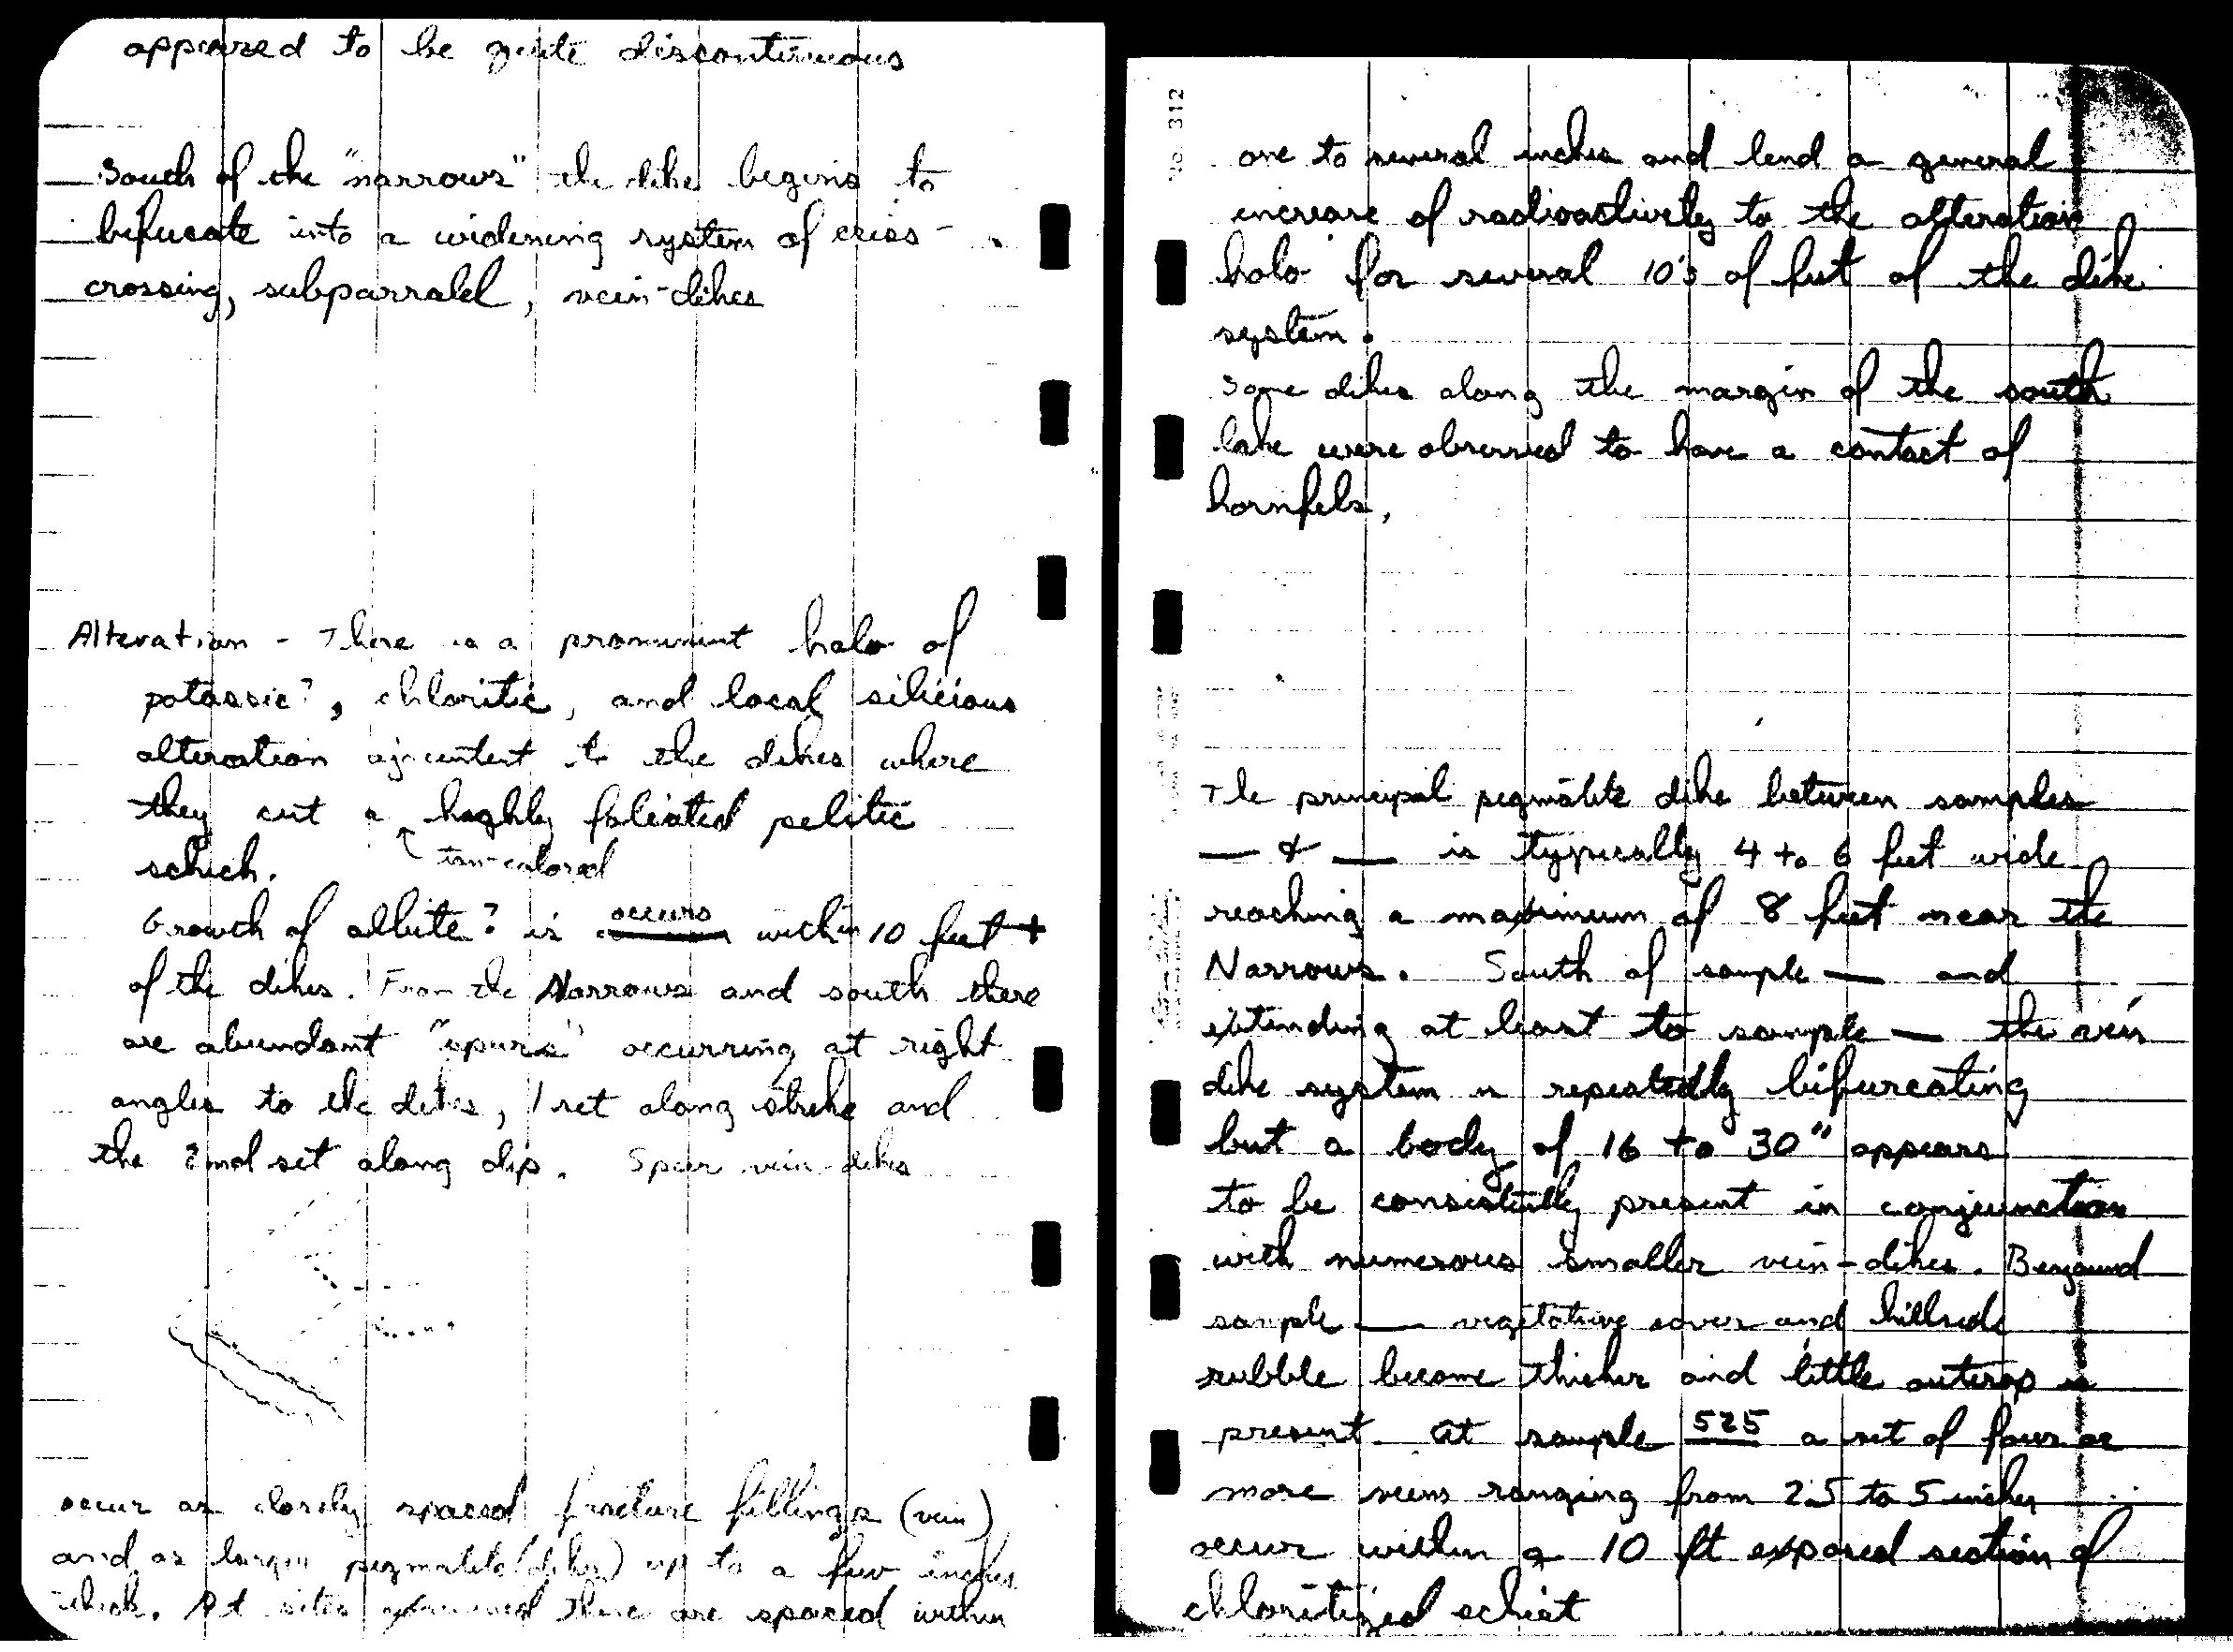 appeared to be quite discontinuous
South of the "narrows" the dike begins to
bifucate into a widening system of criss-
crossing, subparralel, vein-dikes
Alteration - There is a prominent halo of
potassic?, chloritic, and local silicious
alteration ajcentent to the dikes where
they cut a highly foliated pelitic
tan-colored
schich.
Growth of albite? is occurs within 10 feet +
of the dikes. From the Narrows and south there
are abundant "spurs" occurring at right
angles to the dikes, 1 set along strike and
the 2nd set along dip. Spur vein-dikes
occur as closely spaced fracture fillings (vein)
and as larger pegmatite (dikes) up to a few inches
thick. At sites examined there are spaced within
No. 312
one to several inches and lend a general
increase of radioactivity to the alteration
halo for several 10's of feet of the dike
system.
Some dikes along the margin of the south
lake were observed to have a contact of
hornfels,
The principal pegmatite dike between samples
— & — is typically 4 to 6 feet wide
reaching a maximum of 8 feet near the
Narrows. South of sample — and
extending at least to sample — the vein
dike system is repeatedly bifurcating
but a body of 16 to 30" appears
to be consistently present in conjunction
with numerous smaller vein-dikes. Beyound
sample — vegetative cover and hillside
rubble become thicker and little outcrop is
present. At sample 525 a set of four or
more veins ranging from 2.5 to 5 inches
occur within a 10 ft exposed section of
chloritized schist